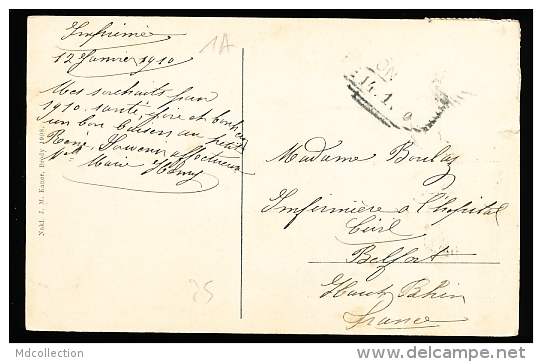 Imprimé
12 Janvier 1910
Mes souhaits pour
1910. santé, joie et bonheur
un bon baiser au petit
René, Souvenir affectueux
Marie Henry
1A
25
Nakł. J. M. Kaner, Brody 1908.
14.1.
Madame Boulay
Infirmière a l'hopital
Civil
Belfort
Haut Rhin
France
Mdcollection
www.delcampe.net